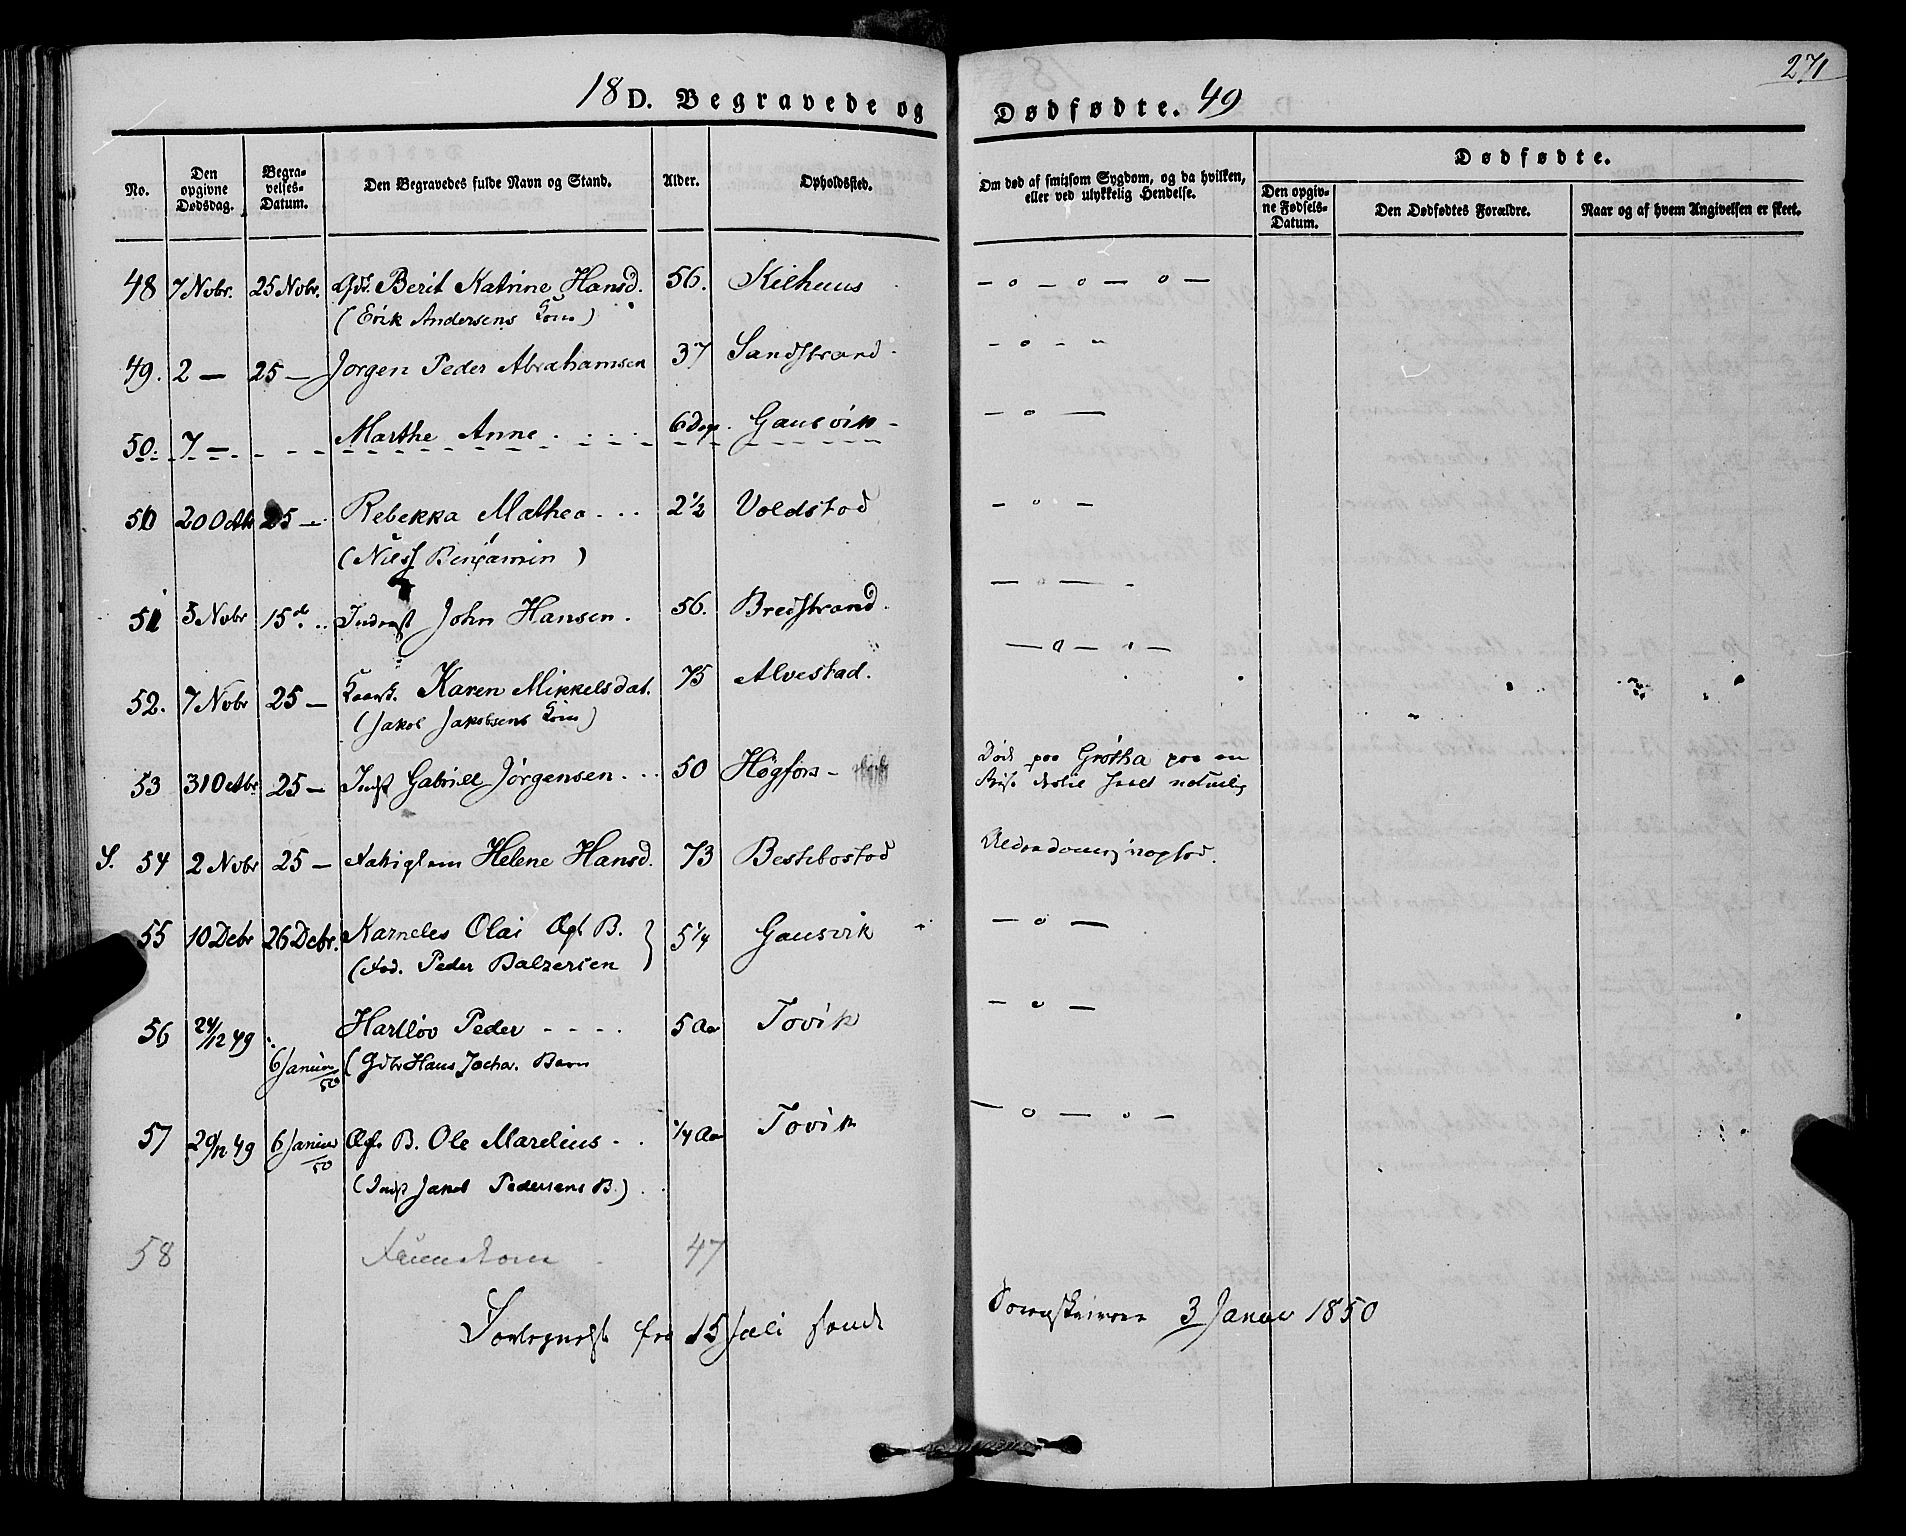 271
18 D. Begravede og Dødfødte. 49
No. Den opgivne Dødsdag. Begravelses-Datum. Den Begravedes fulde Navn og Stand. Alder. Opholdssted. Om død af smitsom Sygdom, og da hvilken, eller ved ulykkelig Hendelse. Dødfødte. Den opgivne Fødsels-Datum. Den Dødfødtes Forældre. Naar og af hvem Angivelsen er skeet.
48 7 Nobr. 25 Nobr. Berit Katrine Hansd. 56. Kilhuus — o — o — o —
(Erik Andersens Kone)
49. 2 — 25 — Jørgen Peder Abrahamsen 37 Sandstrand — o — —
50. 7 — Marthe Anne 6 Dage Gausvik — o —
50 20 Octb 25 — Rebekka Mathea 2 1/2 Voldstod — o —
(Niels Benjamin)
51 3 Nobr 15 d. Inderst John Hansen. 56. Bredstrand. — o —
52. 7 Nobr 25 — Karen Mikkelsdat. 75 Alvestad. — o — o —
(Jakob Jakobsens Kone)
53 31 Octbr 25 — Indst Gabriel Jørgensen 50 Høgfors Død paa Grøtha paa en
Reise
S. 54 2 Nobr 25 — Fatiglem Helene Hansd. 73 Alderdoms
55 10 Debr 26 Debr. Karneles Olai Ægt B. 5 1/4 Gausvik — o —
(Fad. Peder Balzersen
56 24/12 49 6 Januar/50 Hartløv Peder 5 Aar Tovik — o —
(Gdbr Hans Jocha. Barn
57 29/12 49 6 Januar/50 Ægt B. Ole Marelius 1/4 Aar Tovik — o — o —
(Indst Jakob Pedersens B.)
58 47
fra 15 Juli 3 Januar 1850